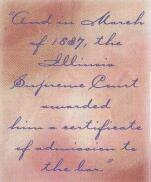 "And in March
of 1887, the
Illinois
Supreme Court
awarded
him a certificate
of admission to
the bar."